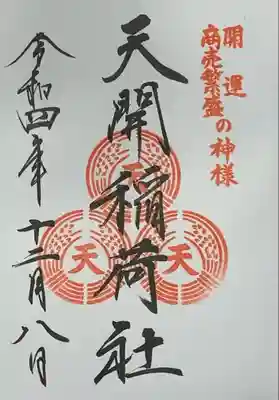 開運
商売繁盛の神様
天開稲荷社
天
天
天
令和四年十二月八日